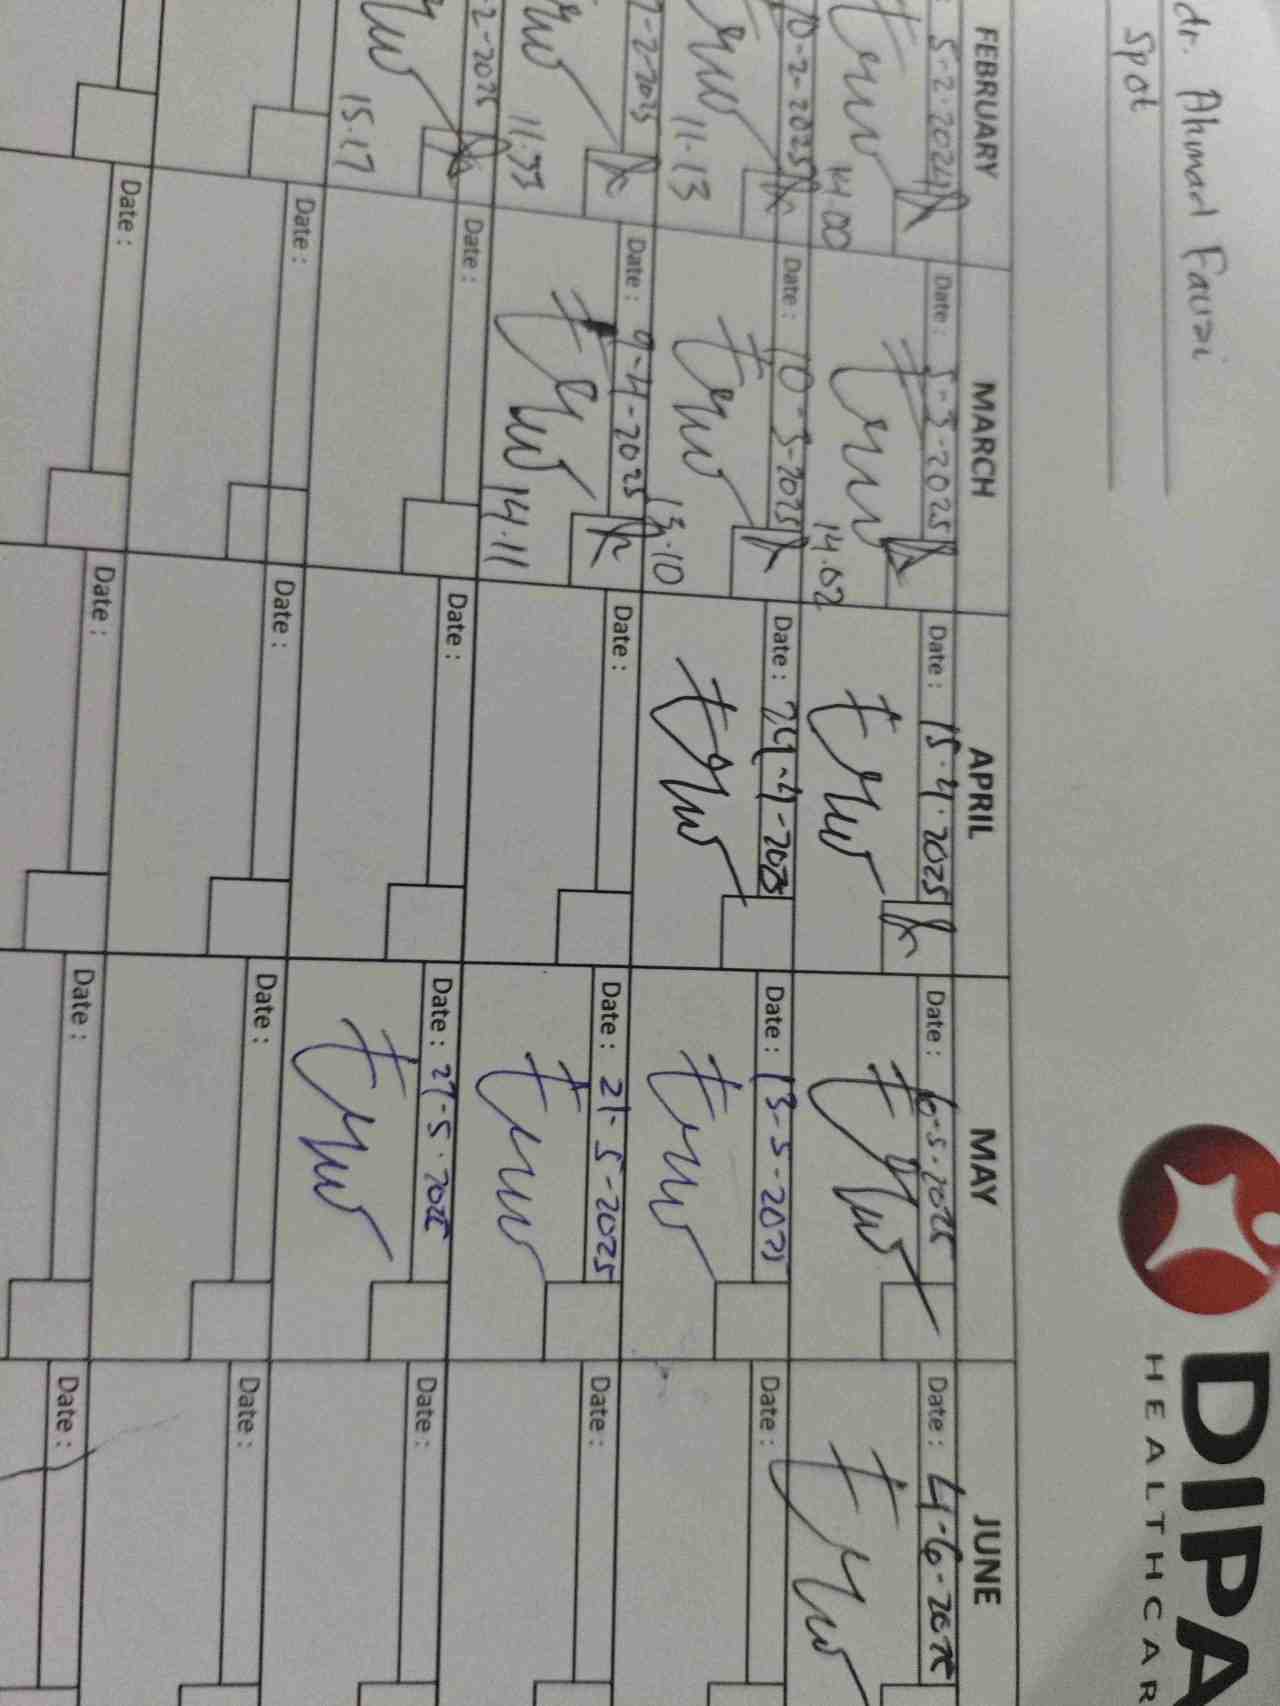 dr. Ahmad Fauzi
Spot
DIPA
HEALTHCAR
FEBRUARY MARCH APRIL MAY JUNE
: 5-2-2024 Date : 5-3-2025 Date : 15-4-2025 Date : 6-5-2025 Date : 4-6-2025
14.00 14.02
10-2-2025 Date : 10-3-2025 Date : 24-4-2025 Date : 13-5-2025 Date :
11.13 13.10
2-2025 Date : 9-4-2025 Date : Date : 21-5-2025 Date :
11.33 14.11
2-2025 Date : Date : Date : 27-5-2025 Date :
15.17
Date : Date : Date : Date :
Date : Date : Date : Date :